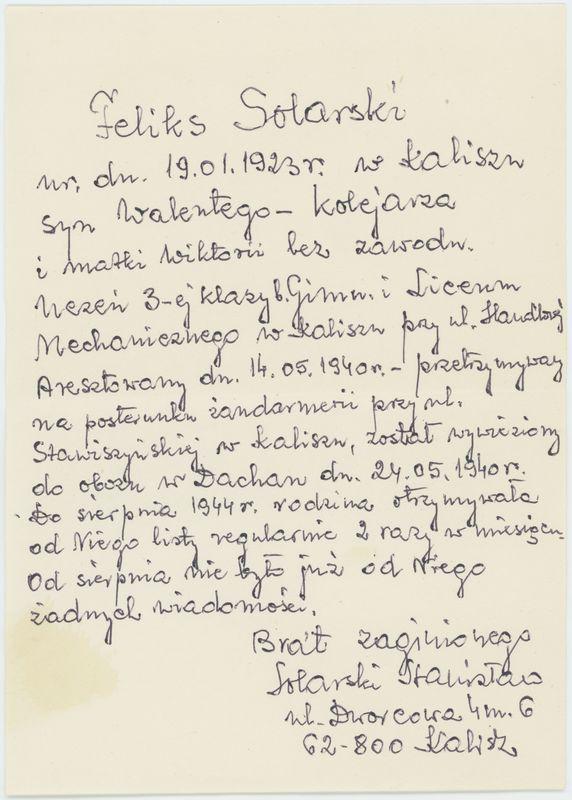 Feliks Solarski
ur. dn. 19.01.1923r. w Kaliszu
syn Walentego - kolejarza
i matki Wiktorii bez zawodu.
Uczeń 3-ej klasy b. Gimn. i Liceum
Mechanicznego w Kaliszu przy ul. Handlowej
Aresztowany dn. 14.05.1940r. - przetrzymywany
na posterunku żandarmerii przy ul.
Stawiszyńskiej w Kaliszu, został wywieziony
do obozu w Dachau dn. 24.05.1940r.
Do sierpnia 1944r. rodzina otrzymywała
od Niego listy regularnie 2 razy w miesiącu.
Od sierpnia nie było już od Niego
żadnych wiadomości.
Brat zaginionego
Solarski Stanisław
ul. Dworcowa 4 m. 6
62-800 Kalisz